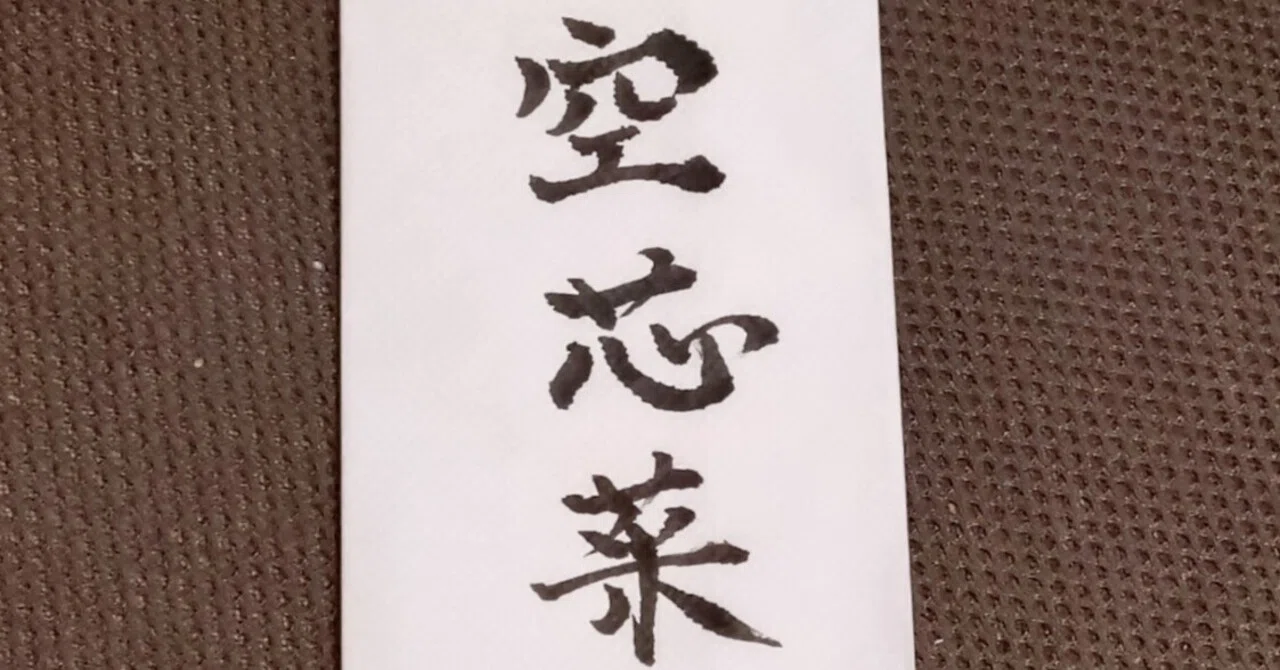 空芯菜